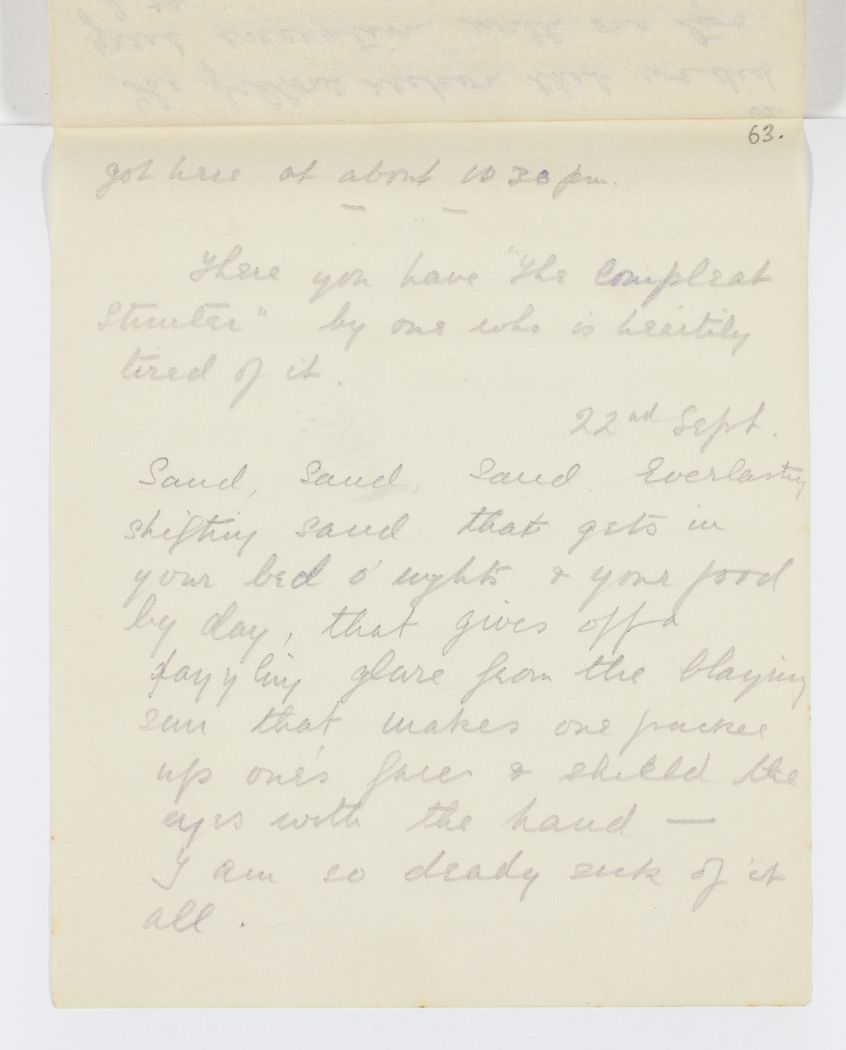 63.
got here at about 10 30 pm.
There you have "The Compleat
Stunter" by one who is heartily
tired of it.
22nd Sept.
Sand, Sand, Sand. Everlasting
shifting sand that gets in
your bed o' nights & your food
by day, that gives off a
dazzling glare from the blazing
sun that makes one pucker
up one's face & shield the
eyes with the hand —
I am so deady sick of it
all.